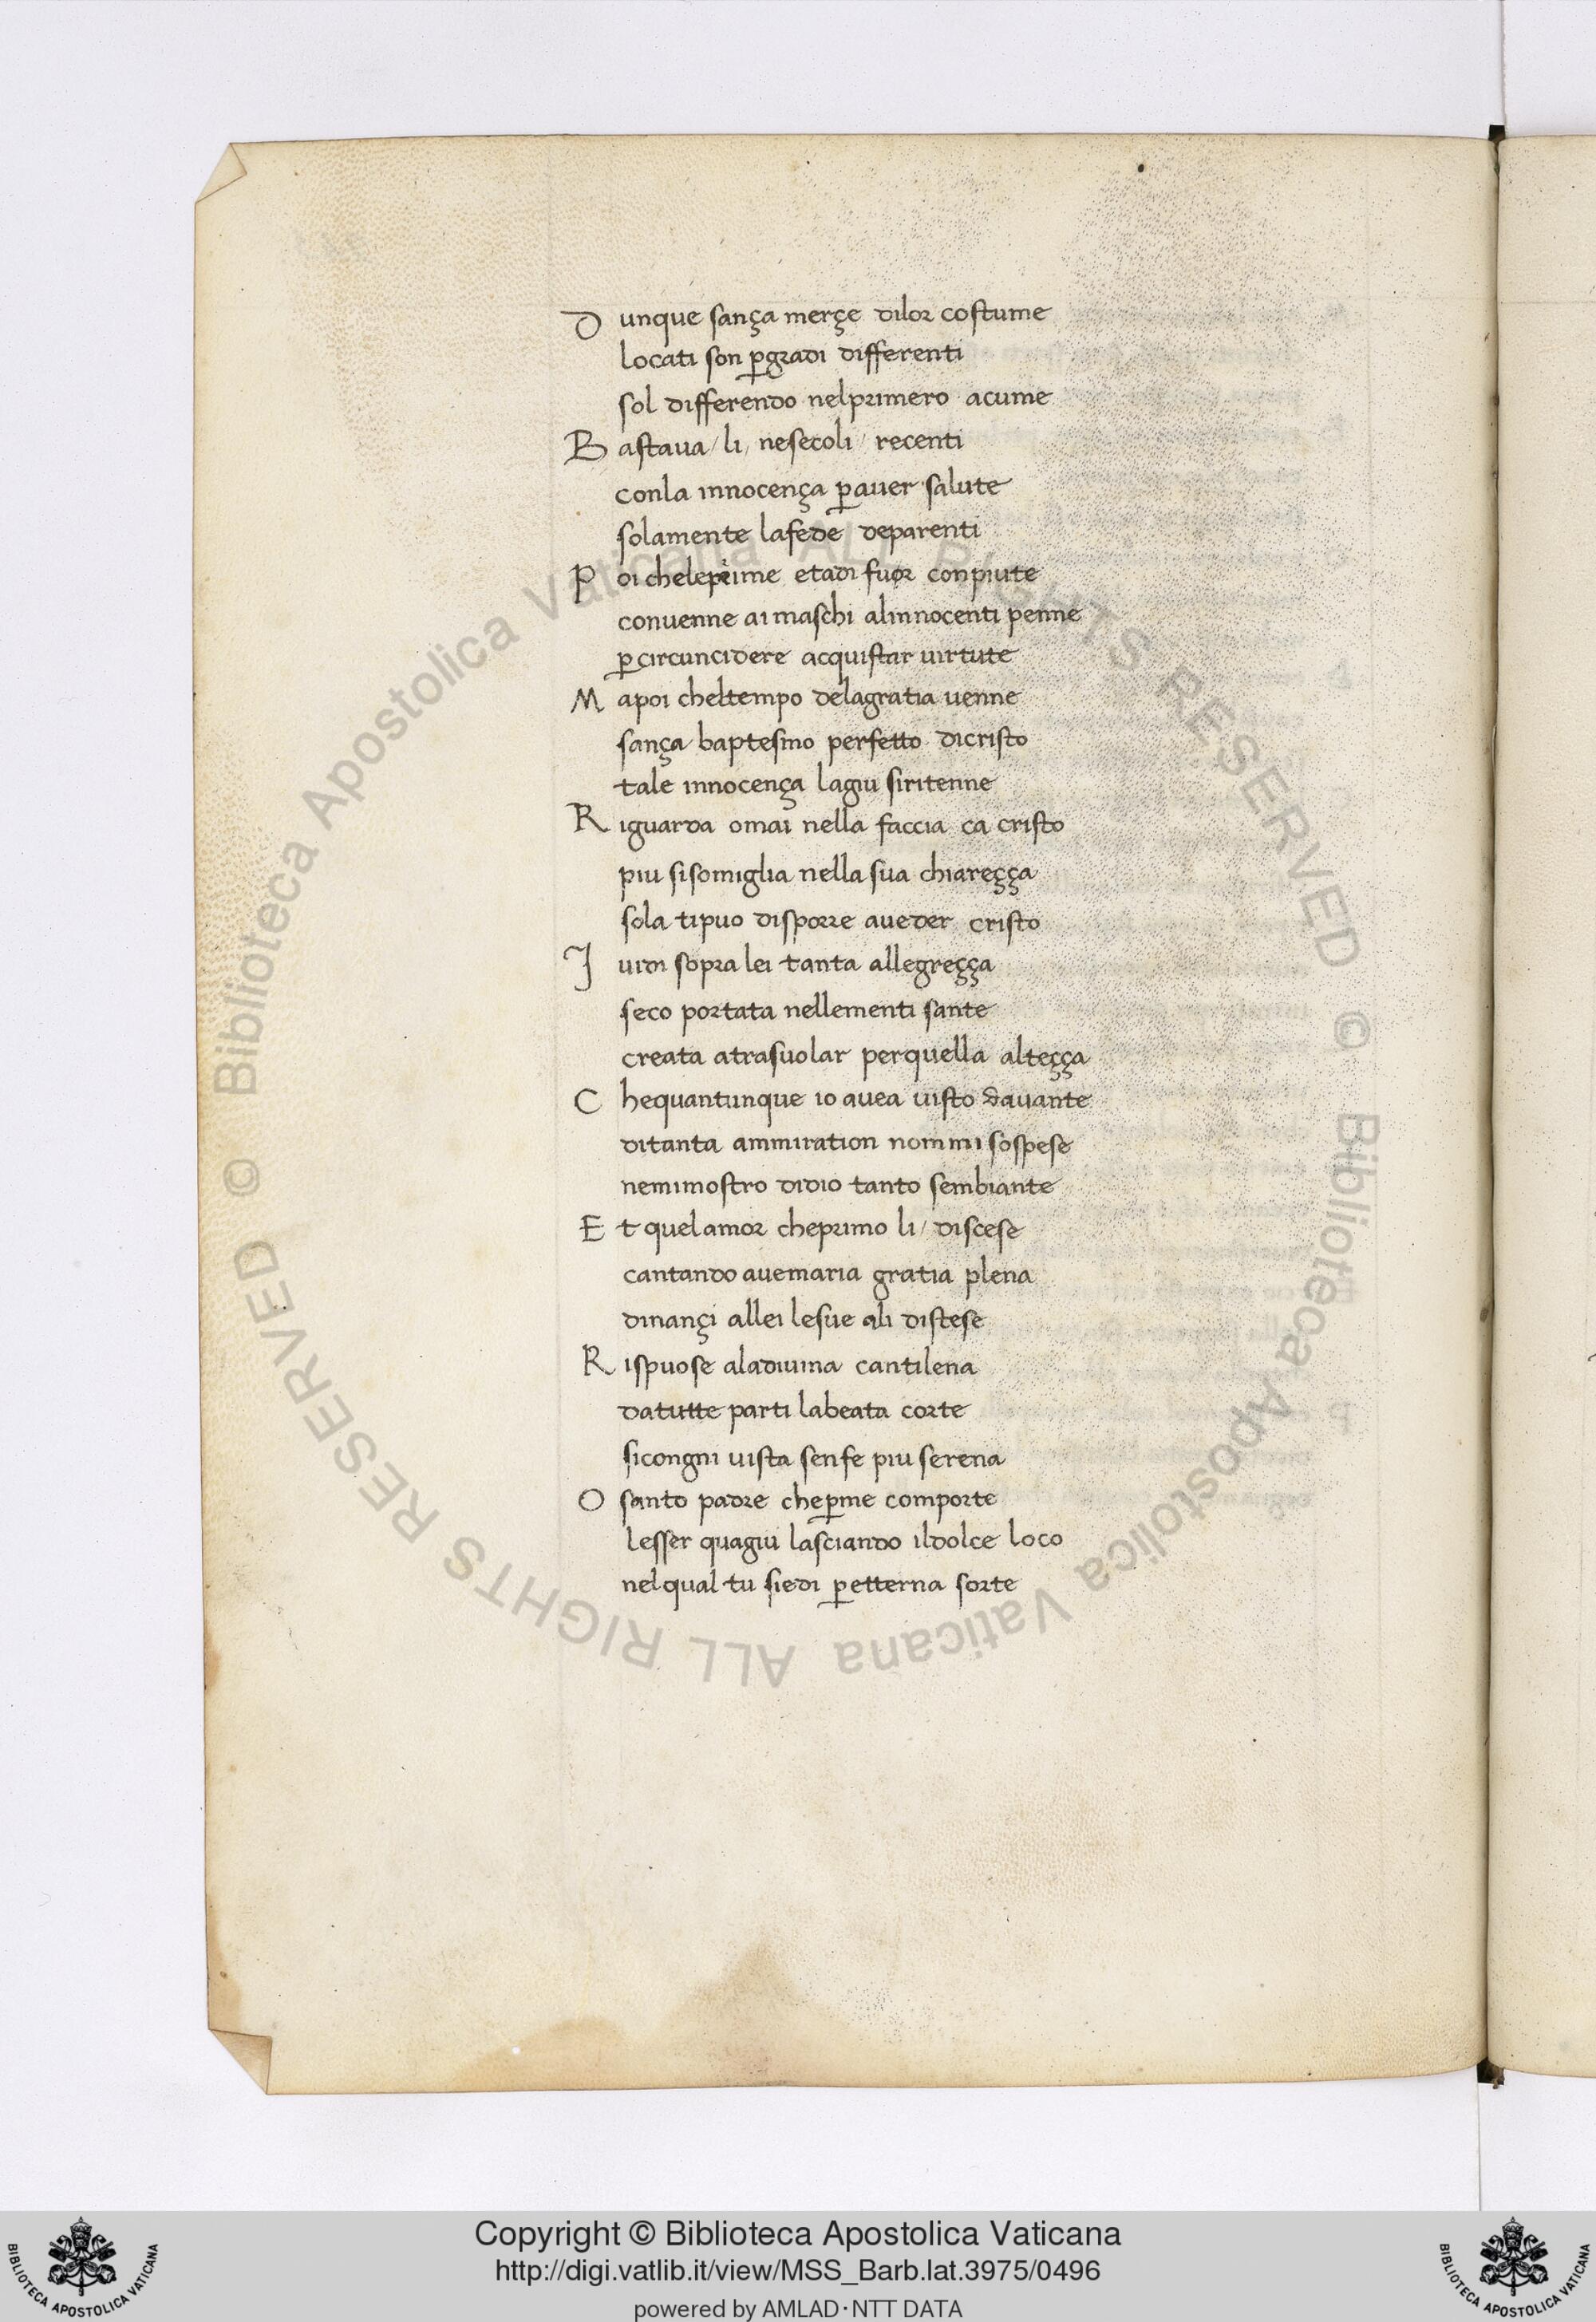 D unque sança merçe dilor costume
locati son ꝑgradi differenti
sol differendo nelprimero acume
B astaua/li/ nesecoli/ recenti
conla innocença ꝑauer salute
solamente lafede deparenti
P oi cheleprime etadi fuor conpiute
conuenne ai maschi alinnocenti penne
ꝑcircuncidere acquistar uirtute
M apoi cheltempo delagratia uenne
sança baptesmo perfetto dicristo
tale innocença lagiu siritenne
R iguarda omai nella faccia ca cristo
piu sisomiglia nella sua chiareçça
sola tipuo disporre aueder cristo
I uidi sopra lei tanta allegreçça
seco portata nellementi sante
creata atrasuolar perquella alteçça
C hequantunque io auea uisto dauante
ditanta ammiration nommi sospese
nemimostro didio tanto sembiante
E t quelamor cheprimo li/ discese
cantando auemaria gratia plena
dinançi allei lesue ali distese
R ispuose aladiuina cantilena
datutte parti labeata corte
sicongni uista senfe piu serena
O santo padre cheꝑme comporte
lesser quagiu lasciando ildolce loco
nelqual tu siedi ꝑetterna sorte
© Biblioteca Apostolica Vaticana ALL RIGHTS RESERVED © Biblioteca Apostolica Vaticana ALL RIGHTS RESERVED
BIBLIOTECA APOSTOLICA VATICANA
Copyright © Biblioteca Apostolica Vaticana
http://digi.vatlib.it/view/MSS_Barb.lat.3975/0496
powered by AMLAD·NTT DATA
BIBLIOTECA APOSTOLICA VATICANA